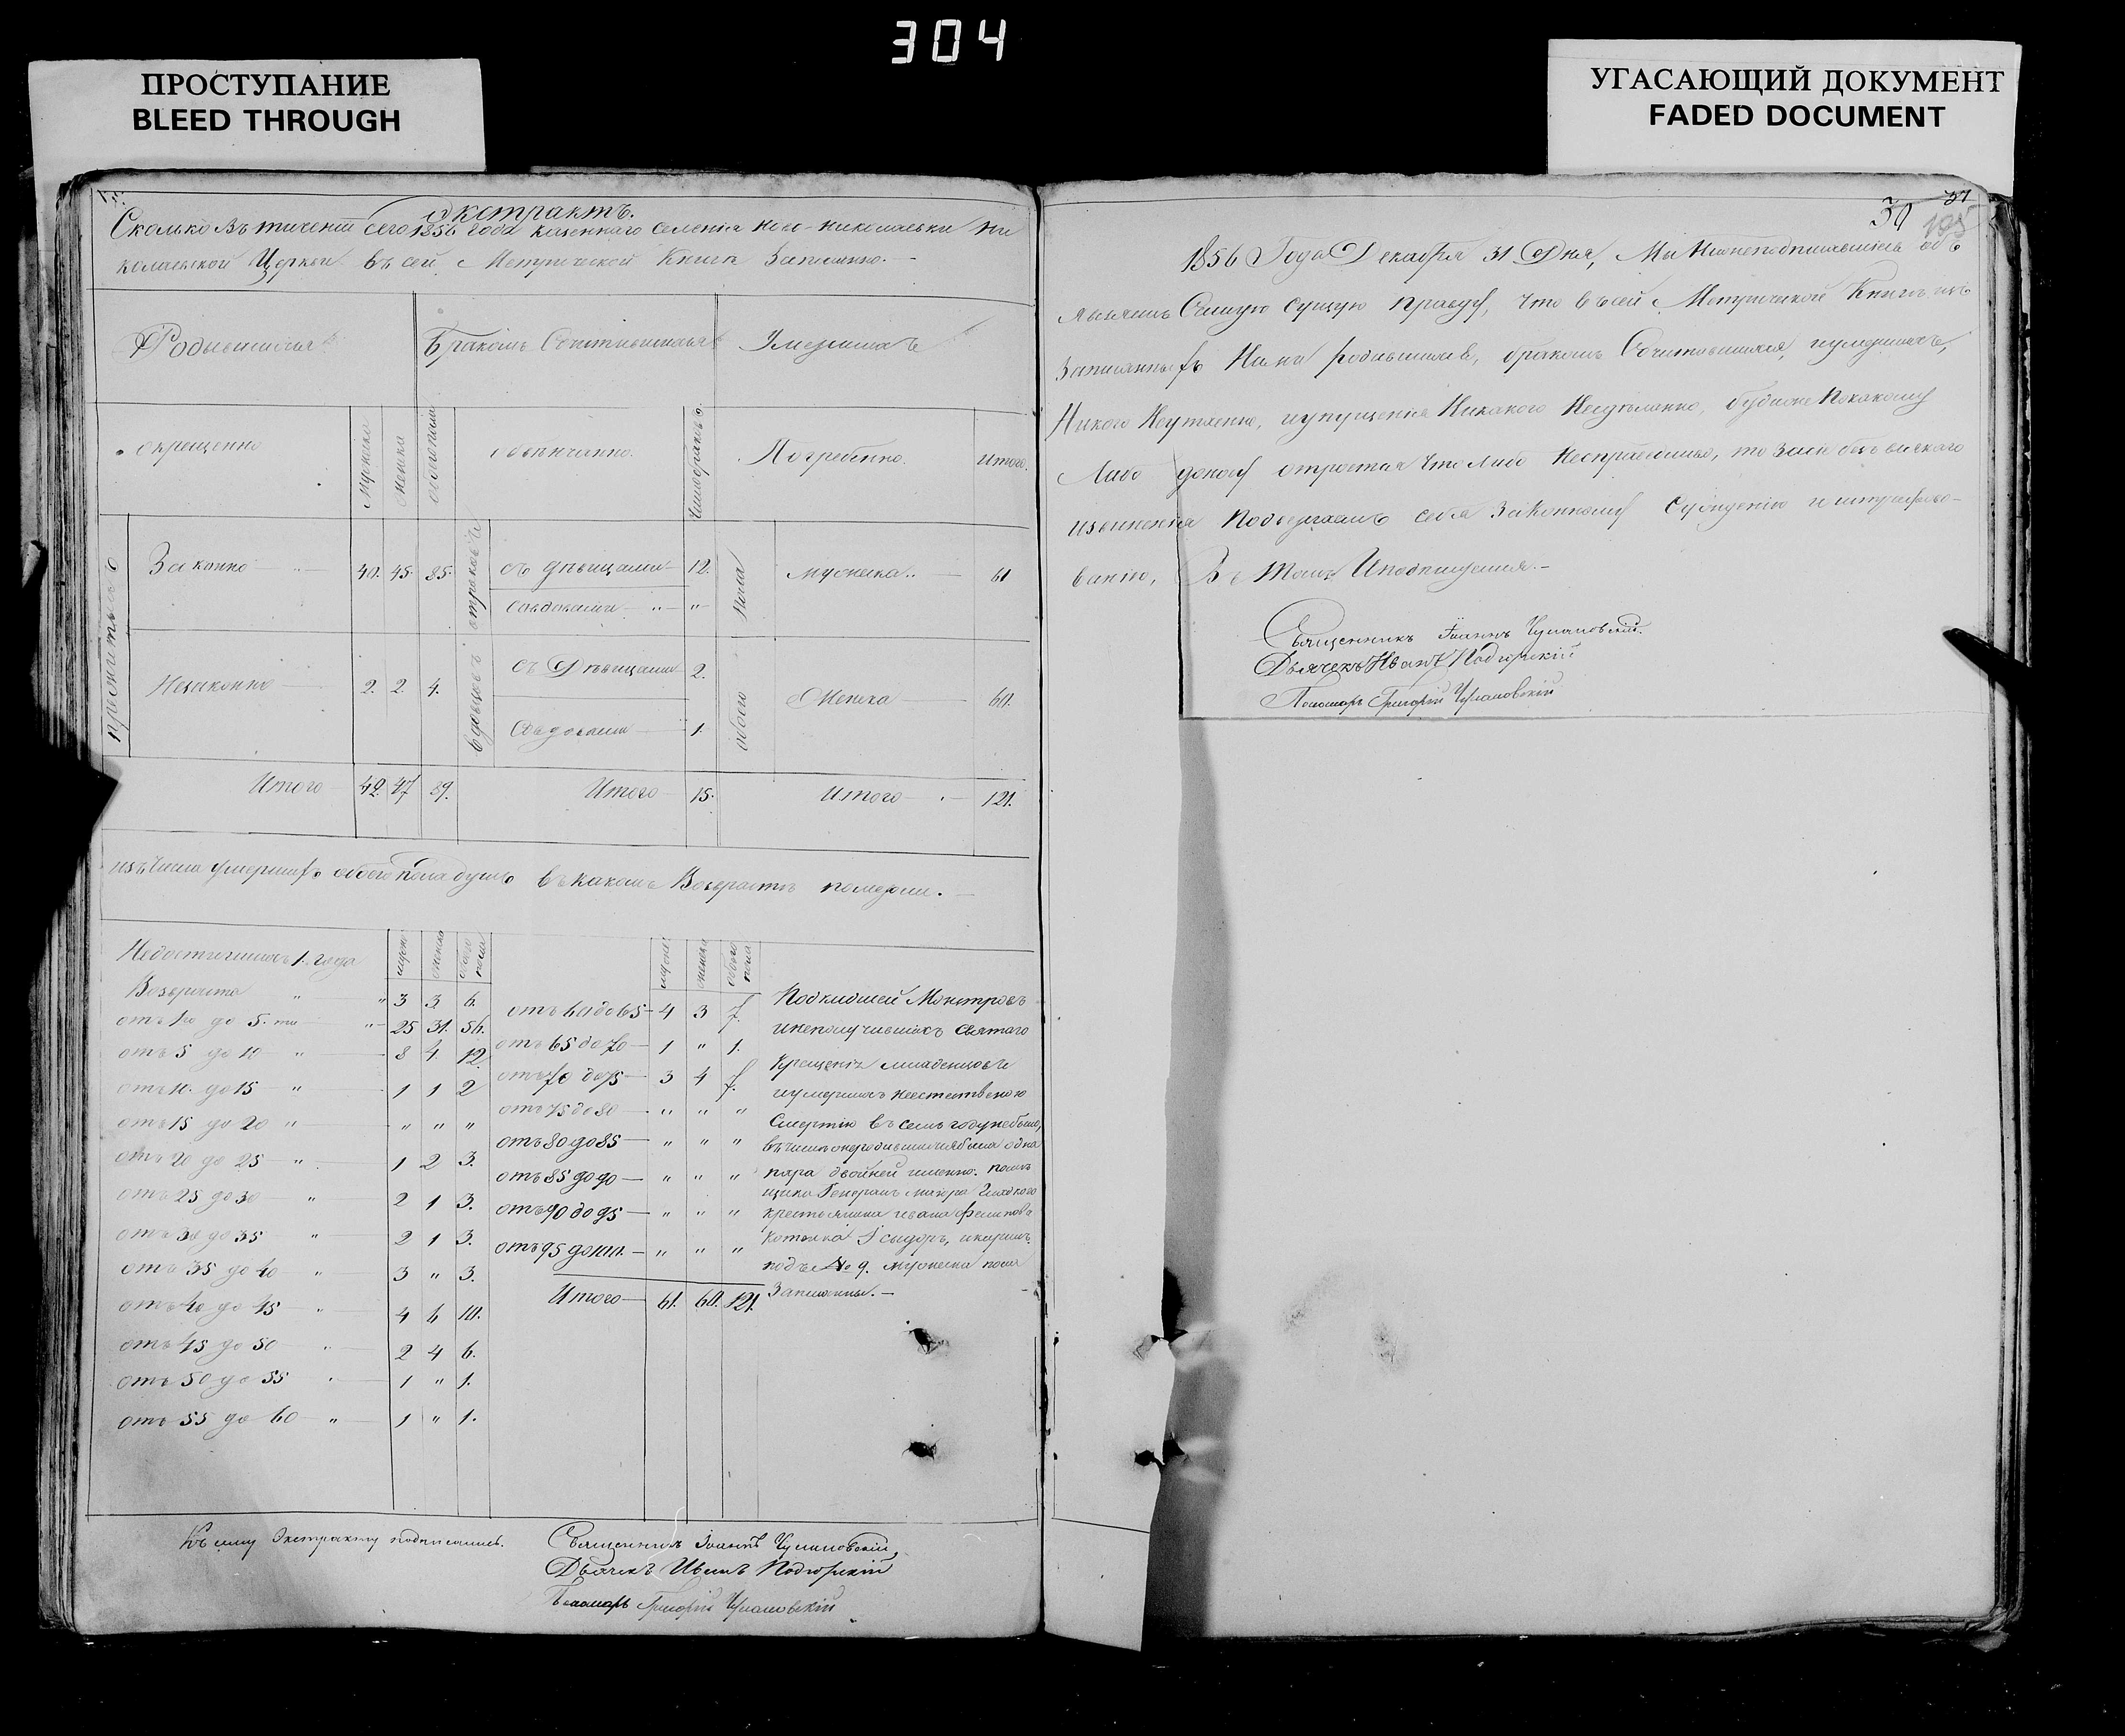 304
ПРОСТУПАНИЕ
BLEED THROUGH
УГАСАЮЩИЙ ДОКУМЕНТ
FADED DOCUMENT
Экстрактъ.
Сколько въ течении сего 1856 года казеннаго селения Ново-Николаевки Ни
колаевской Церкви въ сей Метрической Книге Записанно.
Родившихся Бракомъ Сочитавшихся Умершихъ
окрещенно Мужеска Женска обоего пола обвенчанно. Число браковъ. Погребенно. Итого.
Законно 40. 45. 85. отроковъ съ девицами 12. пола мужеска 61
со вдовами " "
Незаконно 2. 2. 4. вдовцовъ съ Девицами 2. обоего Женска 60.
Со вдовами 1.
Итого 42. 47 89. Итого 15. Итого 121.
изъ числа умершихъ обоего пола душъ въ какомъ Возрасте померли.
Недостигшихъ 1. года муже женска обоего пола
Возраста " " 3 3 6.
отъ 1го до 5. ти " 25 31. 56.
отъ 5 до 10 " 8 4. 12.
отъ 10. до 15 " 1 1 2
отъ 15 до 20 " " " "
отъ 20 до 25 " 1 2 3.
отъ 25 до 30 " 2 1 3.
отъ 30 до 35 " 2 1 3.
отъ 35 до 40 " 3 " 3.
отъ 40 до 45 " 4 6 10.
отъ 45 до 50 " 2 4 6.
отъ 50 до 55 " 1 " 1.
отъ 55 до 60 " 1 " 1.
мужес женска обоего пола
отъ 60 до 65 4 3 7.
отъ 65 до 70 1 " 1.
отъ 70 до 75 3 4 7.
отъ 75 до 80 " " "
отъ 80 до 85 " " "
отъ 85 до 90 " " "
отъ 90 до 95 " " "
отъ 95 до 100. " " "
Итого 61. 60. 121.
Подкидшей Монстровъ
инеполучившихъ святаго
Крещения младенцовъ и
и умершихъ неестественою
Смертию въ семъ году небыло,
въ числе же родившихся была одна
пара двойней именно. поме
щика Генералъ маиора Гладкого
крестьянина Ивана Филипова
Сидоръ,
подъ № 9. мужеска пола
Записанны.
Къ сему Экстракту подписались.
Священникъ Іоаннъ Чулановскій,
Дьячекъ Иванъ Подгорскій
Пономарь Григорій Чулановскій
30
37
195
1856 Года Декабря 31 Дня, Мы Нижеподписавшиеся объ
являемъ Самую сущую правду, что въ сей Метрической Книге изъ
Записанныхъ Нами родившихся, бракомъ Сочитавшихся, и умершихъ,
Никого Неутаенно, и упущения Никакого Неучинено, буде же По какому
Либо доносу откроется Что Либо Несправедливо, то За сие безъ всякаго
извинения Подвергаемъ себя Законному Суждению и штрафо-
ванию, Въ Томъ И подпишемся.
Священникъ Іоаннъ Чулановскій.
Дьячекъ Иванъ Подгорскій
Пономарь Григорій Чулановскій